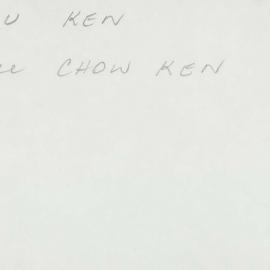 U KEN
ee CHOW KEN